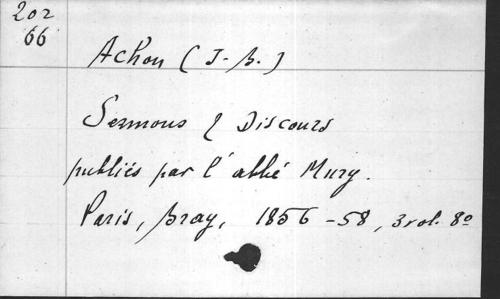 202
66
Achon (J-B.)
Sermons & Discours
publiés par l'abbé Mury.
Paris, Bray, 1856-58, 3 vol. 8º